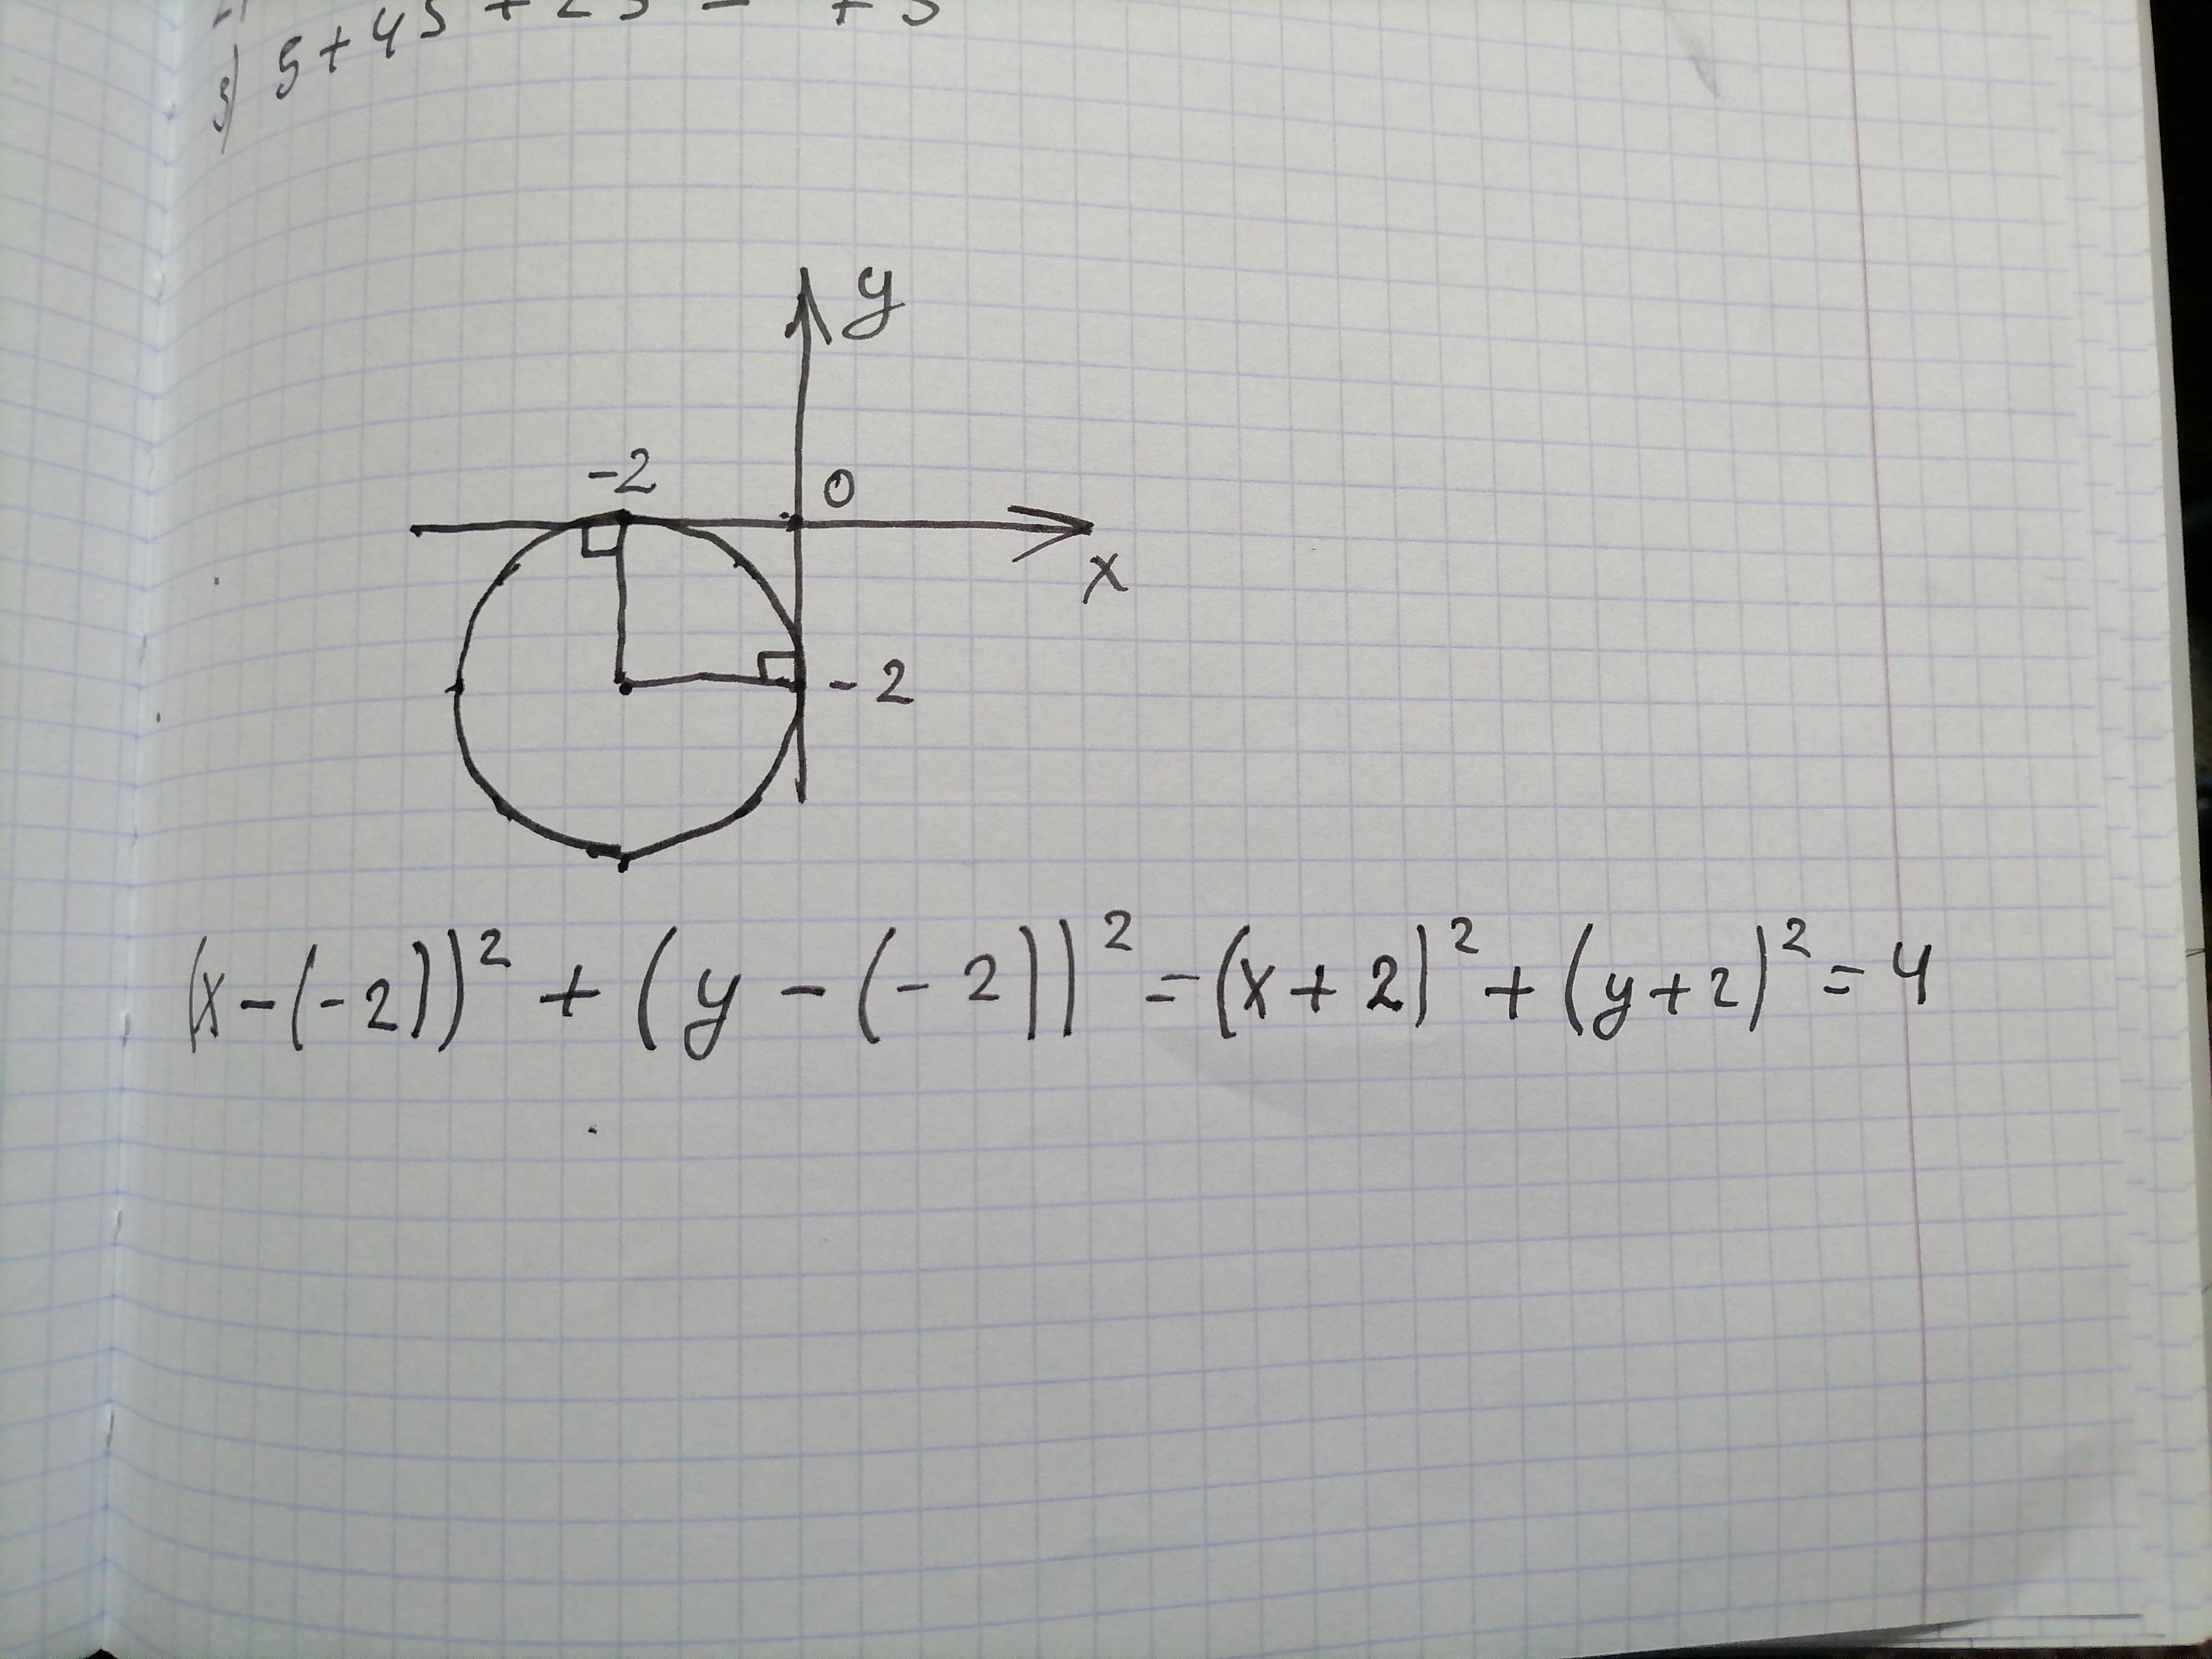 y
-2 0
x
-2
(x-(-2))² + (y-(-2))² = (x+2)² + (y+2)² = 4